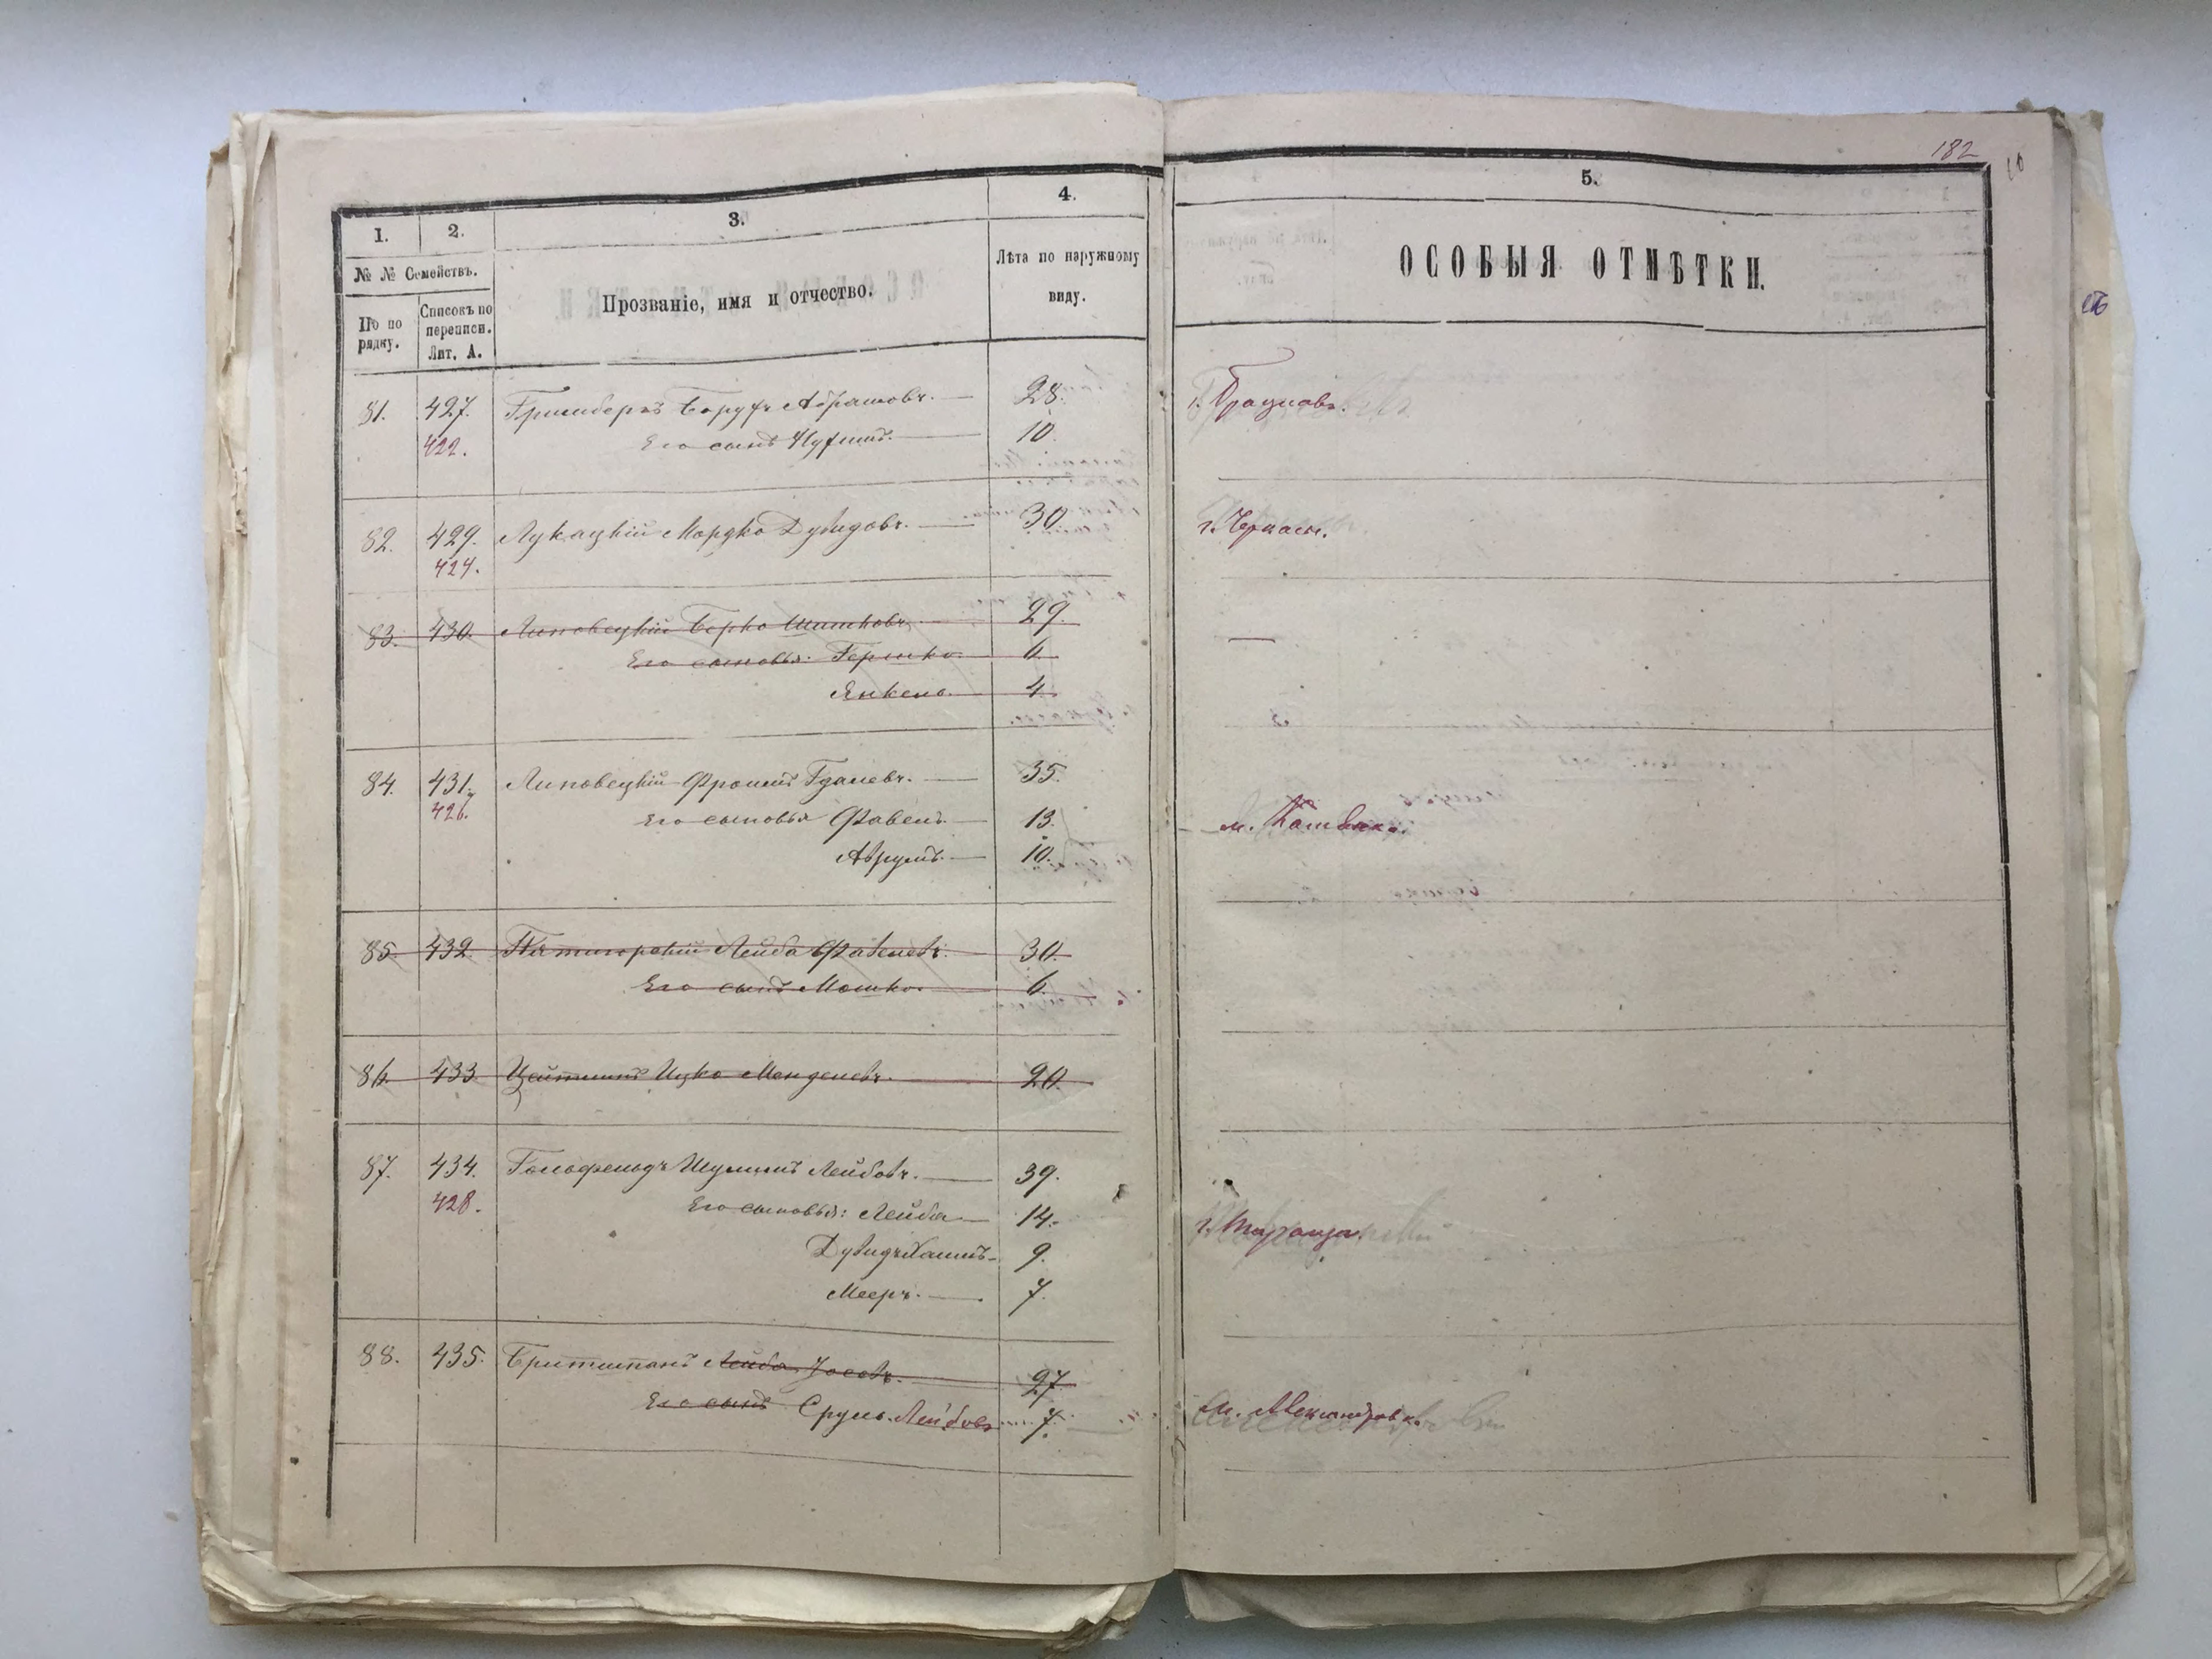 182
10
1.
2.
3.
4.
5.
№ № Семействъ.
По по рядку.
Списокъ по переписи. Лит. А.
Прозваніе, имя и отчество.
Лѣта по наружному виду.
ОСОБЫЯ ОТМѢТКИ.
81. 427. Гринбергъ Борухъ Абрамовъ. — 28. г. Брацлавъ.
422. Его сынъ Нухимъ. — 10.
82. 429. Лукацкій Мордко Дувидовъ. — 30. г. Черкасы.
424.
83. 430. Липовецкій Берко Шитковъ. 29. —
Его сыновья: Гершко. 6.
Янкель. 4.
84. 431. Липовецкій Фроимъ Гдалевъ. — 35.
426. Его сыновья Файвель. — 13. м.
Аврумъ. — 10.
85. 432. Пятигорскій Лейба Файвелевъ. 30.
Его сынъ Мошко. 6.
86. 433. Цейтлинъ Ицко Менделевъ. 20.
87. 434. Гольдфельдъ Шулимъ Лейбовъ. — 39.
428. Его сыновья: Лейба — 14. г. Тараща.
Дувидъ Хаимъ — 9.
Мееръ. — 7.
88. 435. Бритшпанъ Лейба Іосевъ. 27.
Его сынъ Сруль. Лейбовъ 7. м. Александровка